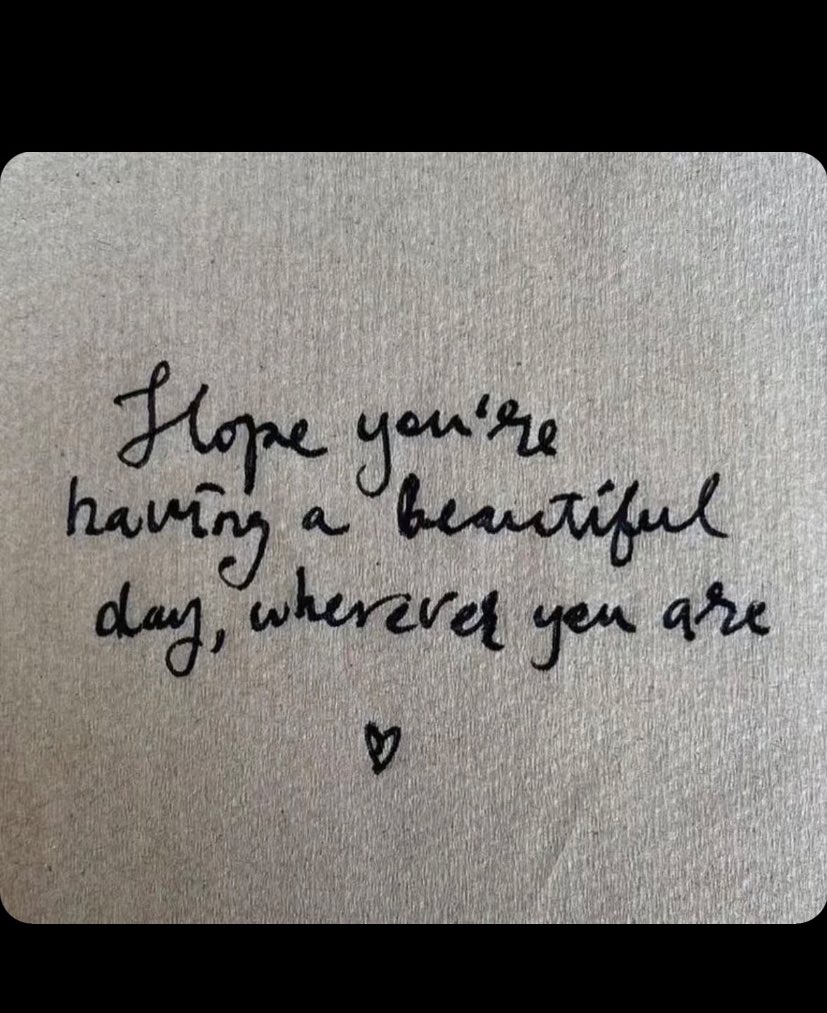 Hope you're
having a beautiful
day, wherever you are